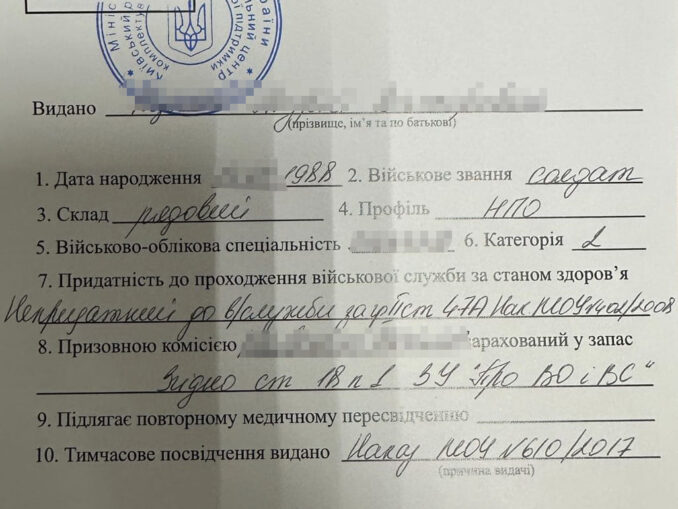 Міні
країни
Київський р
льний центр
комплектува
ої підтримки
Видано
(прізвище, ім'я та по батькові)
1. Дата народження 1988 2. Військове звання солдат
3. Склад рядовий 4. Профіль НПО
5. Військово-облікова спеціальність 6. Категорія 2
7. Придатність до проходження військової служби за станом здоров'я
Непридатний до в/служби за гр II ст 47А Нак МОУ №402/2008
8. Призовною комісією зарахований у запас
Згідно ст 18 п 1 ЗУ "Про ВО і ВС"
9. Підлягає повторному медичному пересвідченню
10. Тимчасове посвідчення видано Наказ МОУ №610/2017
(причина видачі)